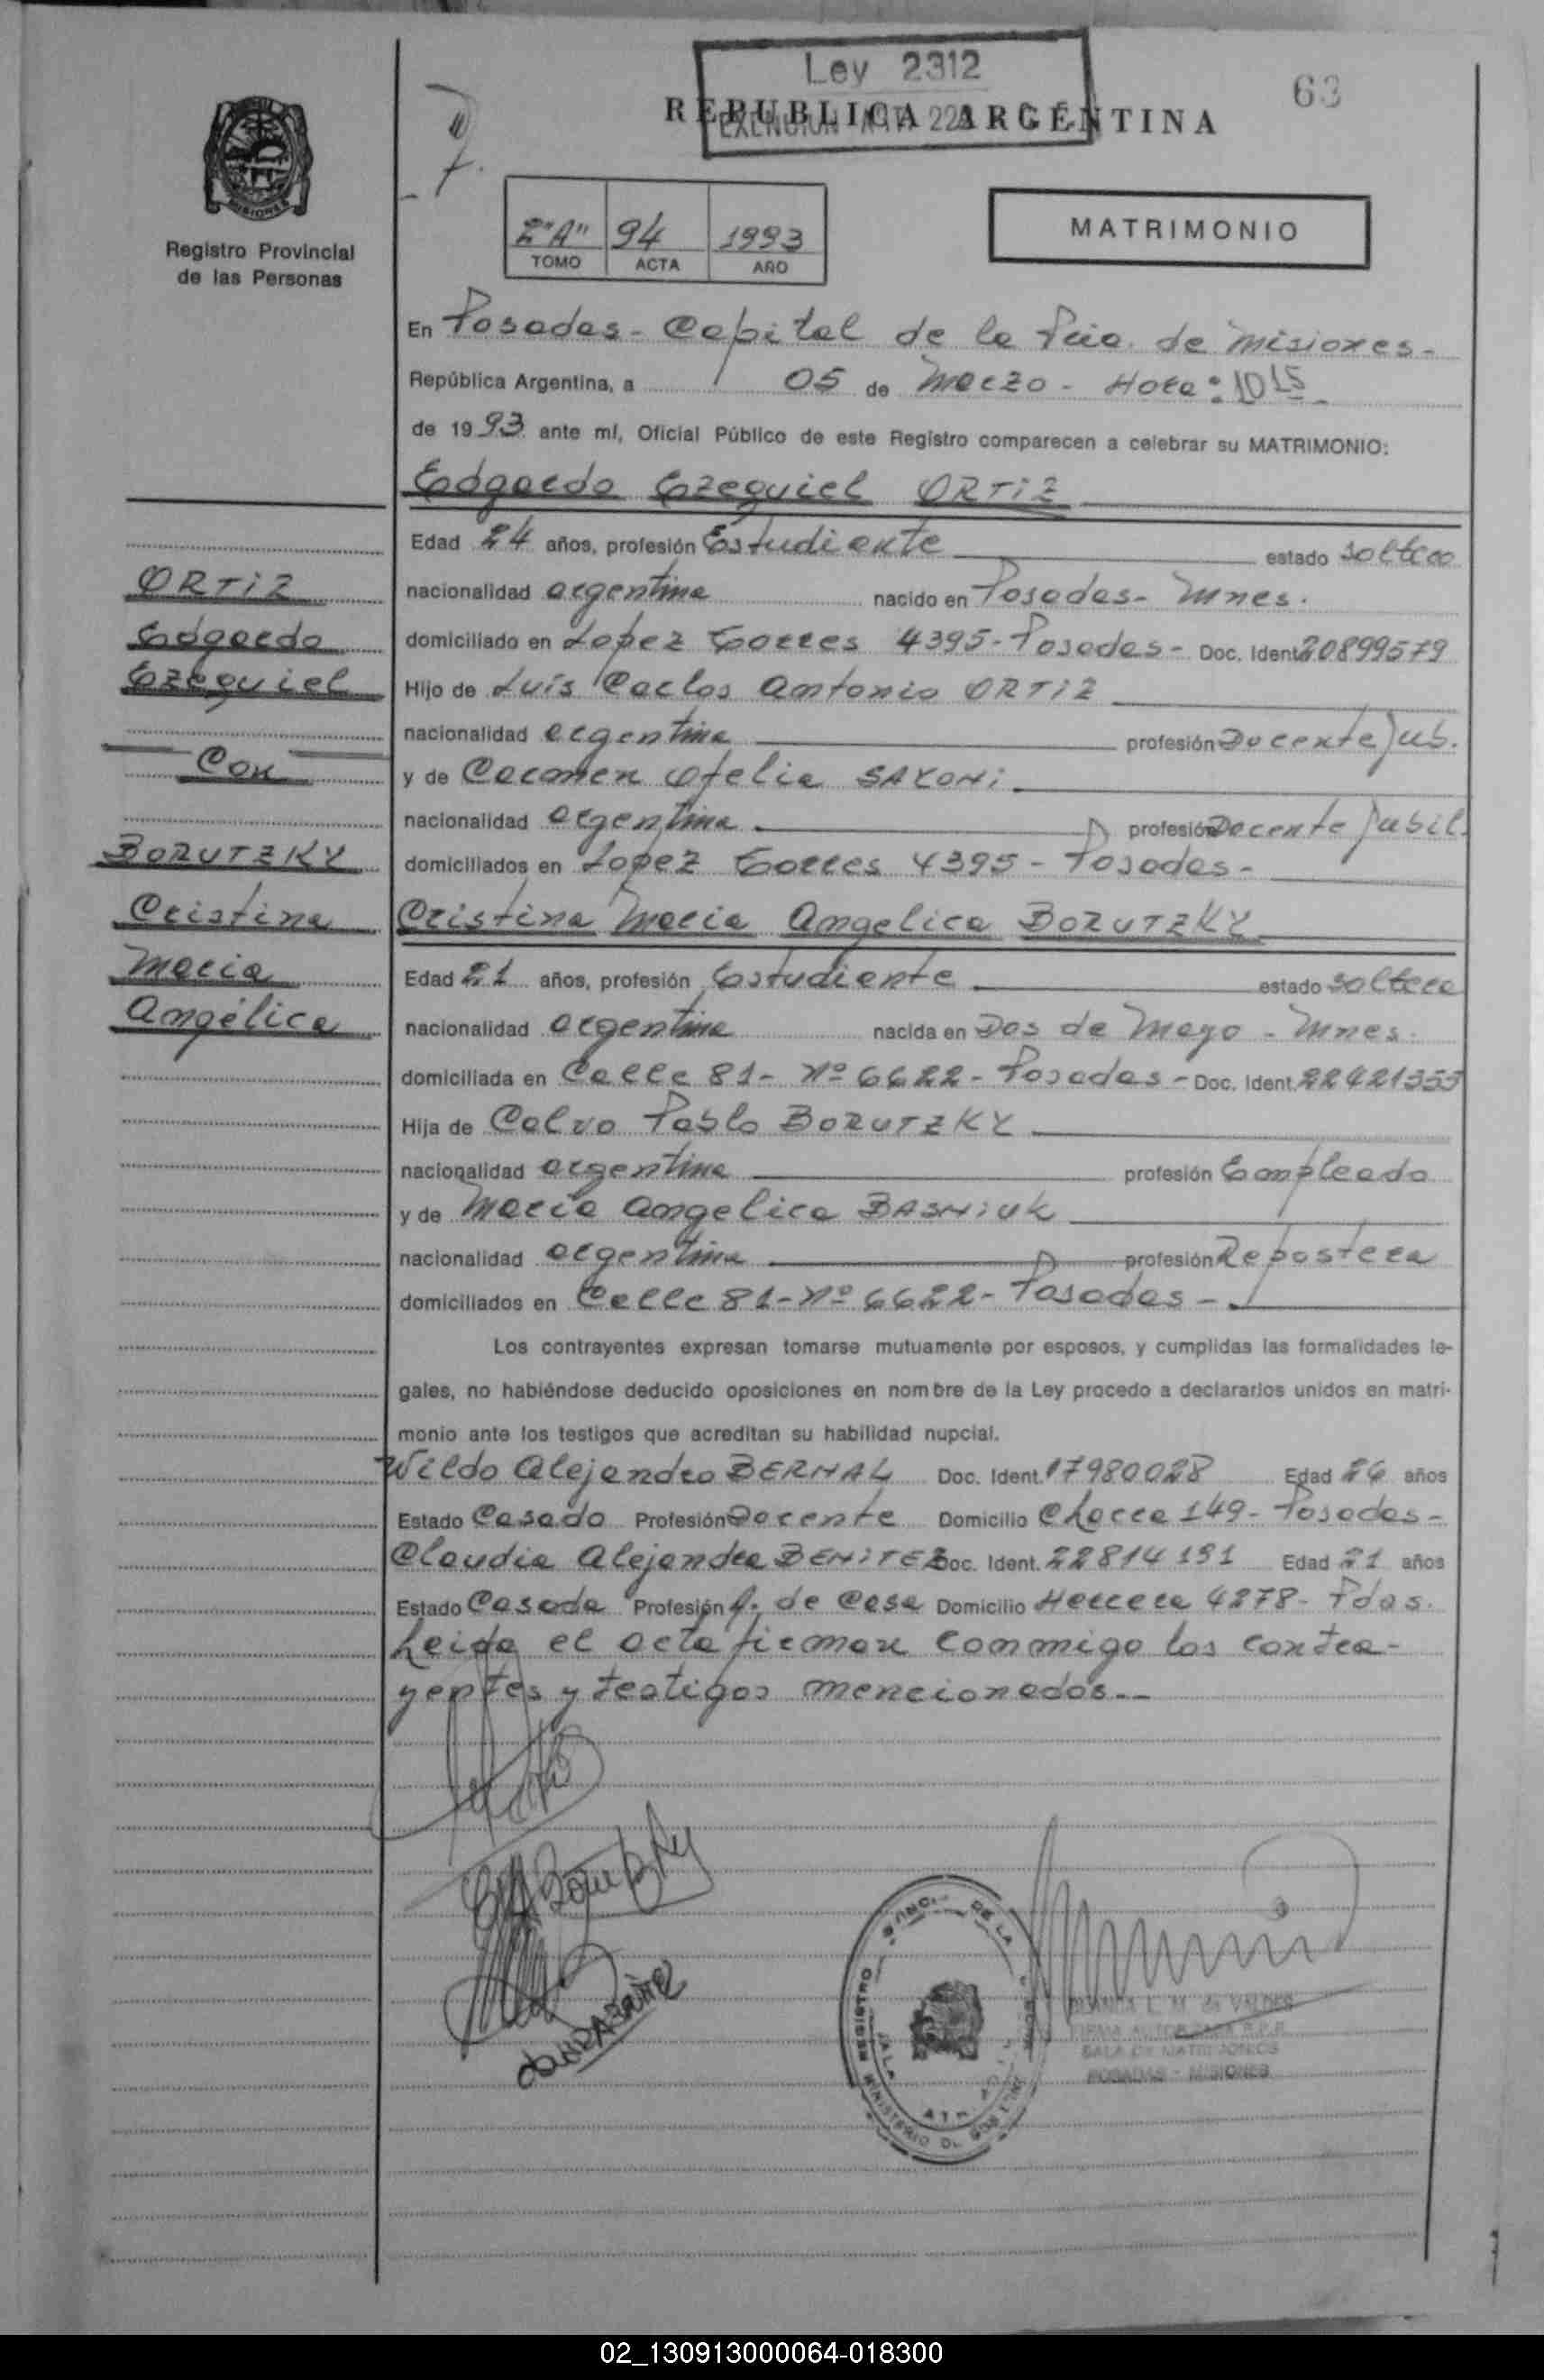 Ley 2312
63
REPUBLICA ARGENTINA
EXENCION ART. 228
MISIONES
Registro Provincial
de las Personas
2"A" 94 1993
TOMO ACTA AÑO
MATRIMONIO
En Posadas - Capital de la Pcia. de Misiones -
República Argentina, a 05 de Marzo - Hora: 10 15
de 1993 ante mí, Oficial Público de este Registro comparecen a celebrar su MATRIMONIO:
Edgardo Ezequiel ORTIZ
Edad 24 años, profesión Estudiante estado soltero
ORTIZ
nacionalidad argentina nacido en Posadas - Mnes.
Edgardo
domiciliado en Lopez Torres 4395 - Posadas - Doc. Ident. 20899579
Ezequiel
Hijo de Luis Carlos Antonio ORTIZ
nacionalidad argentina profesión Docente Jub.
Con
y de Carmen Ofelia SAXONI
nacionalidad argentina profesión Docente Jubil.
BORUTZKY
domiciliados en Lopez Torres 4395 - Posadas -
Cristina
Cristina Maria Angelica BORUTZKY
Maria
Edad 21 años, profesión Estudiante estado soltera
Angélica
nacionalidad argentina nacida en Dos de Mayo - Mnes.
domiciliada en Calle 81 - Nº 6622 - Posadas - Doc. Ident. 22421353
Hija de Calvo Pablo BORUTZKY
nacionalidad argentina profesión Empleado
y de Maria Angelica BASNIUK
nacionalidad argentina profesión Repostera
domiciliados en Calle 81 - Nº 6622 - Posadas -
Los contrayentes expresan tomarse mutuamente por esposos, y cumplidas las formalidades le-
gales, no habiéndose deducido oposiciones en nombre de la Ley procedo a declararlos unidos en matri-
monio ante los testigos que acreditan su habilidad nupcial.
Wildo Alejandro BERNAL Doc. Ident. 17980028 Edad 26 años
Estado Casado Profesión Docente Domicilio Chacra 149 - Posadas -
Claudia Alejandra BENITEZ Doc. Ident. 22814191 Edad 21 años
Estado Casada Profesión A. de Casa Domicilio Herrera 4278 - Pdas.
Leida el acta firman conmigo los contra-
yentes y testigos mencionados.--
BLANCA L. M. de VALDES
FIRMA AUTORIZADA R.P.P.
SALA DE MATRIMONIOS
POSADAS - MISIONES
REGISTRO
DE LA
MINISTERIO DE
02_130913000064-018300